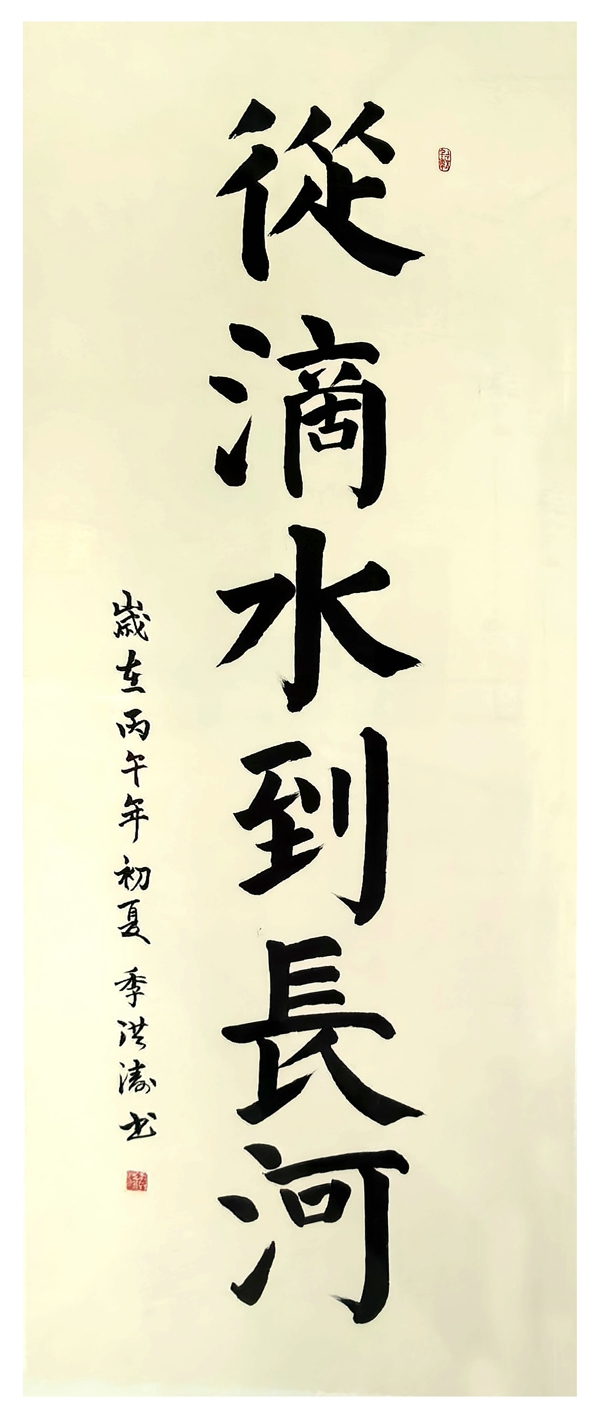 從滴水到長河
歲在丙午年初夏 季洪濤书